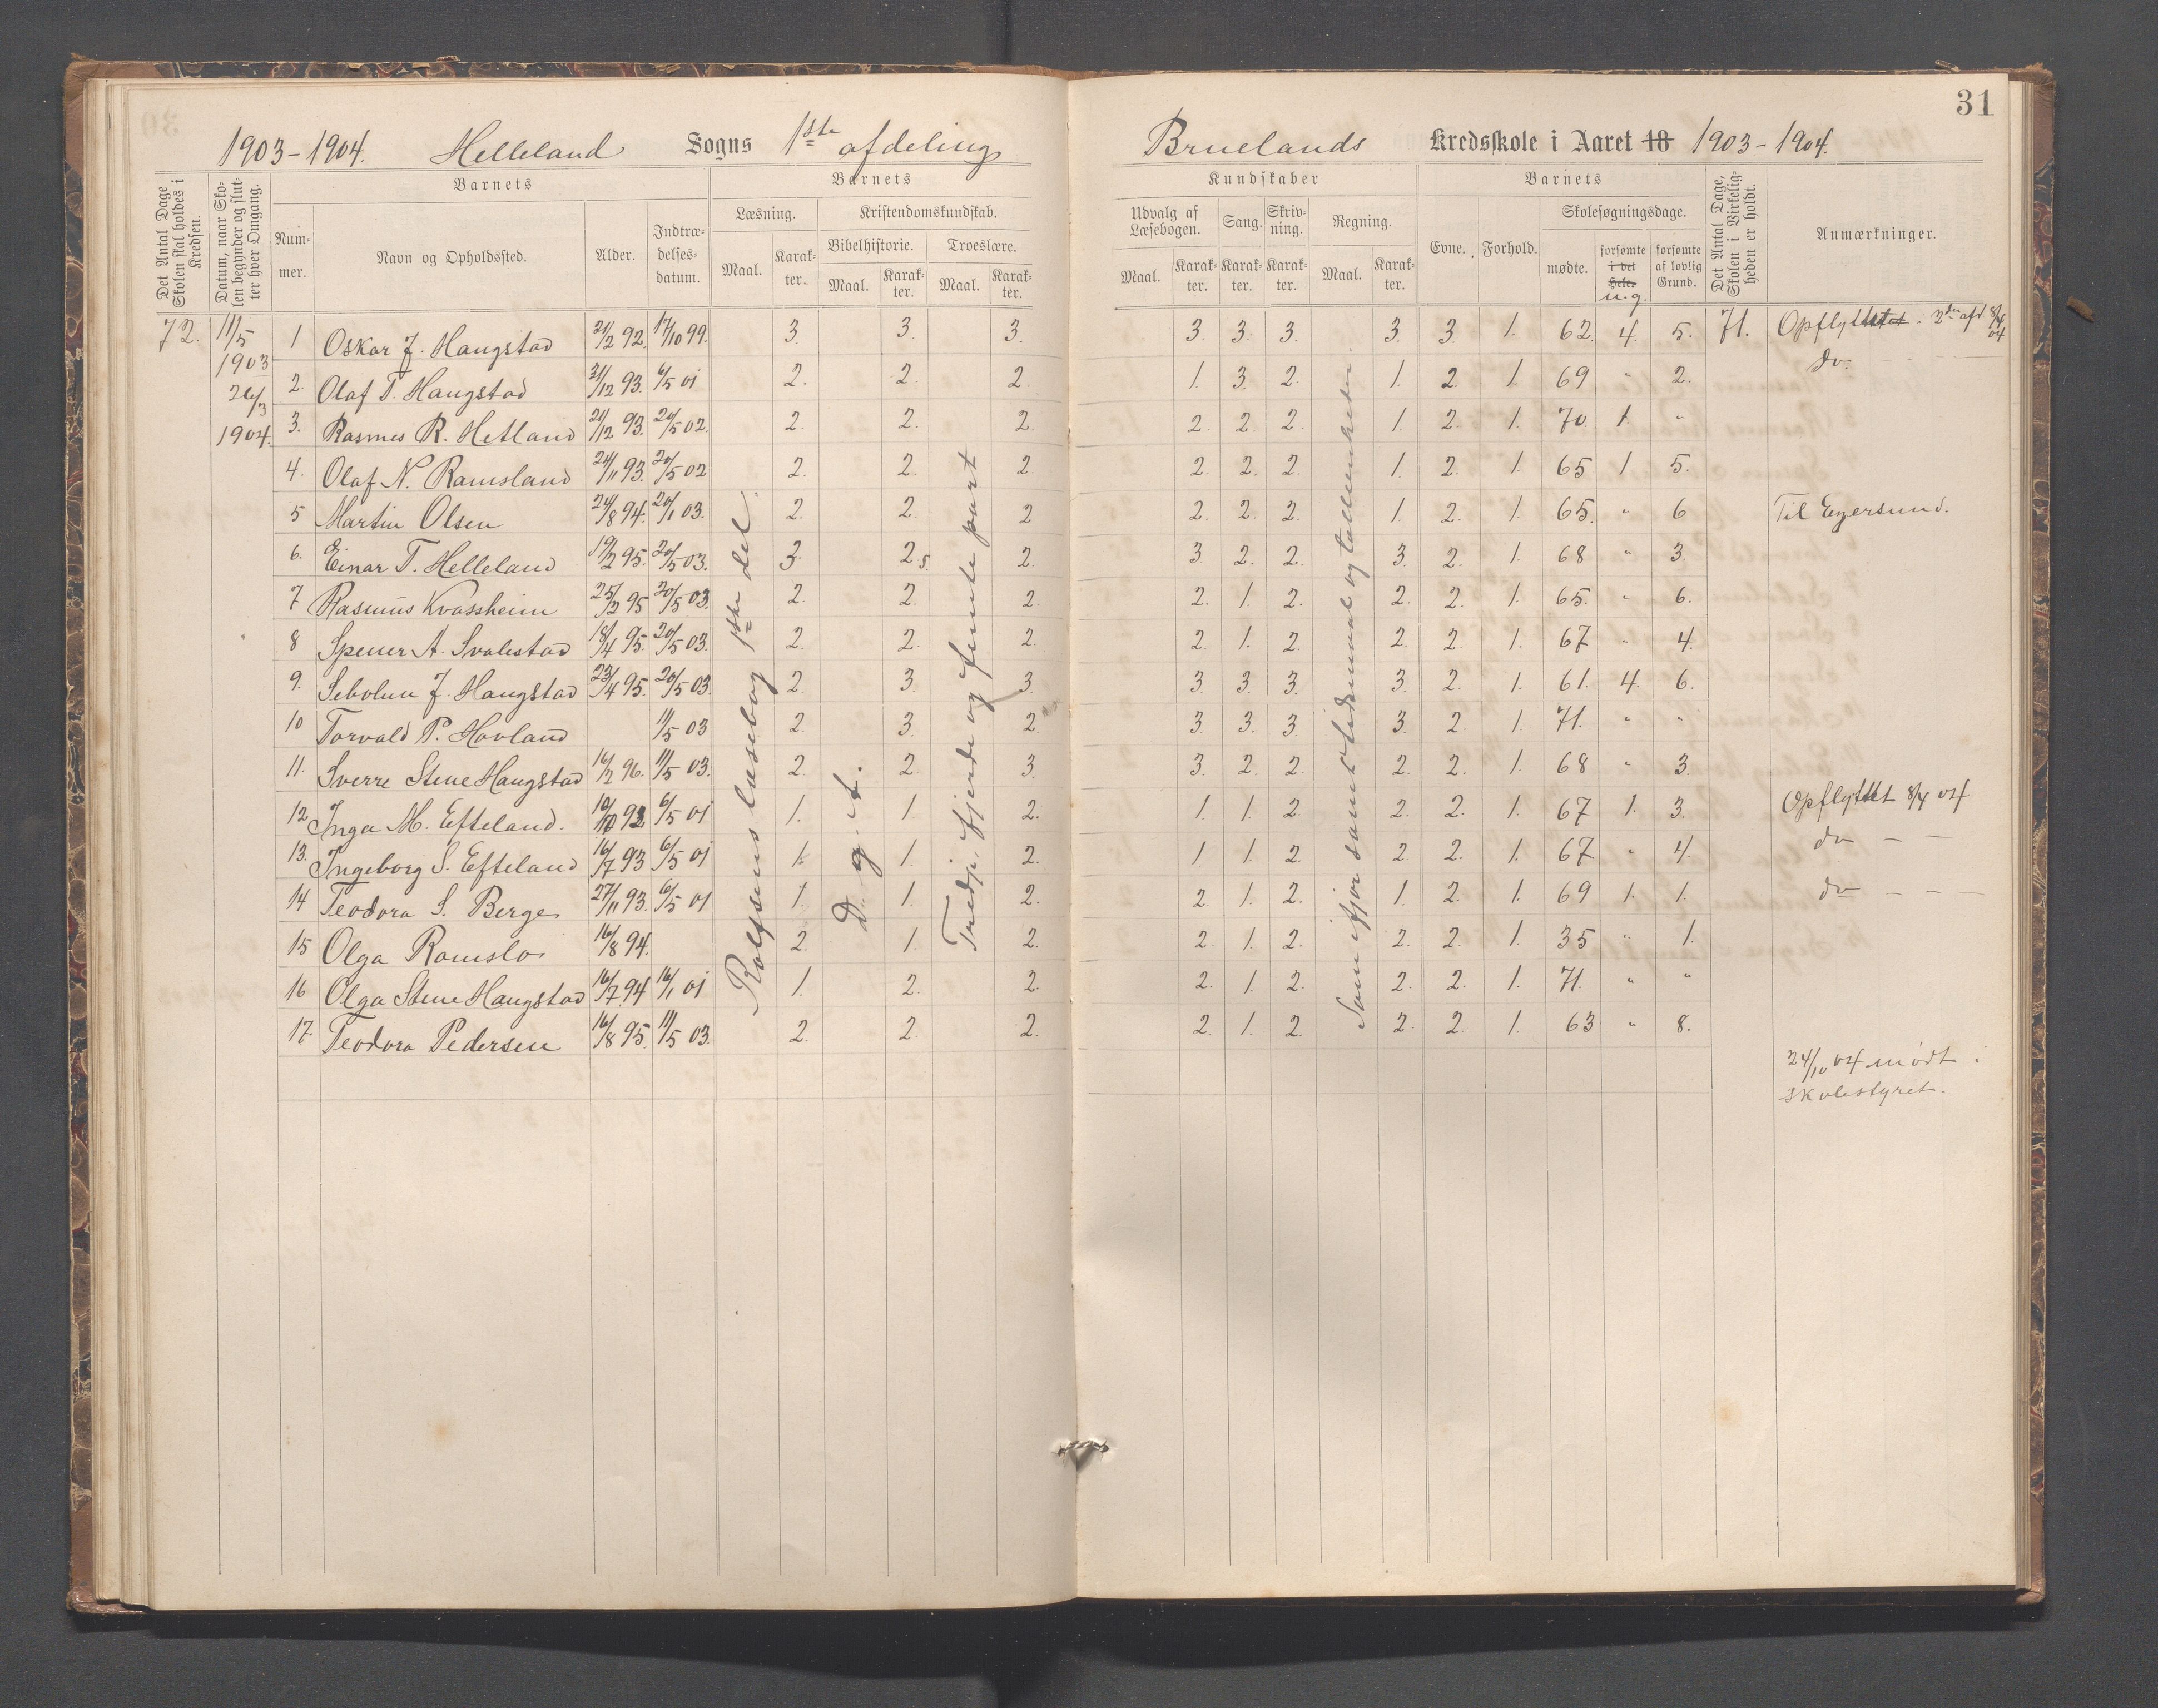 31
1903-1904. Helleland Sogns 1ste afdeling
Bruelands Kredsskole i Aaret 18 1903-1904.
Det Antal Dage Skolen skal holdes i Kredsen.
Datum, naar Skolen begynder og slutter hver Omgang.
Barnets
Barnets
Kundskaber
Barnets
Det Antal Dage, Skolen i Virkeligheden er holdt.
Anmærkninger.
Nummer.
Navn og Opholdssted.
Alder.
Indtrædelsesdatum.
Læsning.
Kristendomskundskab.
Bibelhistorie.
Troeslære.
Maal. Karakter. Maal. Karakter. Maal. Karakter.
Udvalg af Læsebogen. Sang. Skrivning. Regning.
Maal. Karakter. Karakter. Karakter. Maal. Karakter.
Evne. Forhold. Skolesøgningsdage.
mødte. forsømte i det Hele. u.g. forsømte af lovlig Grund.
72. 11/5 1903 26/3 1904.
1 Oskar J. Haugstad 21/2 92. 17/10 99. 3. 3. 3. 3. 3. 3. 3. 3. 1. 62. 4. 5. 71. Opflyttet. 2den afd. 8/4 04
2. Olaf T. Haugstad 31/12 93. 6/5 01 2. 2. 2. 1. 3. 2. 1. 2. 1. 69 " 2. do.
3. Rasmus R. Hetland 21/12 93. 20/5 02. 2. 2. 2. 2. 2. 2. 1. 2. 1. 70. 1. "
4. Olaf N. Ramsland 24/11 93. 20/5 02 2. 2. 2. 2. 2. 2. 1. 2. 1. 65 1 5.
5 Martin Olsen 24/8 94. 20/1 03. 2. 2. 2 2. 2. 2. 1. 2. 1. 65. " 6 Til Egersund.
6. Einar T. Helleland 19/2 95. 20/5 03. 3. 2.5. 2. 3 2. 2. 3. 2. 1. 68 " 3.
7 Rasmus Kvassheim 25/2 95 20/5 03. 2. 2. 2. 2. 1. 2. 2. 2. 1. 65. " 6.
8 Spener A. Svalestad 18/4 95. 20/5 03. 2. 2. 2. 2. 1. 2. 2. 2. 1. 67 " 4.
9. Sebolun J. Haugstad 23/4 95. 20/5 03. 2. 3. 3. 3. 3. 3. 3. 2. 1. 61. 4. 6.
10 Torvald P. Hovland 11/5 03 2. 3. 2. 3. 3. 3. 3. 2. 1. 71. " "
11. Sverre Stene Haugstad 16/2 96. 11/5 03. 2. 2. 3. 3. 2. 2. 2. 2. 1. 68 " 3.
12. Inga M. Efteland. 10/10 92 6/5 01 1. 1. 2. 1. 1. 2. 2. 2. 1. 67 1. 3. Opflyttet 8/4 04
13. Ingeborg S. Efteland 16/7 93 6/5 01 1. 1. 2. 1. 1. 2. 2. 2. 1. 67 " 4. do - -
14 Teodora S. Berge 27/11 93. 6/5 01 1. 1. 2. 2. 1. 2. 1. 2. 1. 69 1. 1. do - - -
15 Olga Ramslo 16/8 94. 2. 1. 2. 2. 1. 2. 2. 2. 1. 35 " 1.
16 Olga Stene Haugstad 16/7 94 16/1 01 1. 2. 2. 2. 1. 2. 2. 2. 1. 71. " "
17. Teodora Pedersen 16/8 95. 11/5 03. 2. 2. 2. 2. 1. 2. 2. 2. 1. 63 " 8.
Rolfsens læsebog 1ste del.
D. g. t.
Tredje, fjerde og femte part
Som ifjor samt tidsmaal og tallenheder.
24/10 04 mødt i
skolestyret.